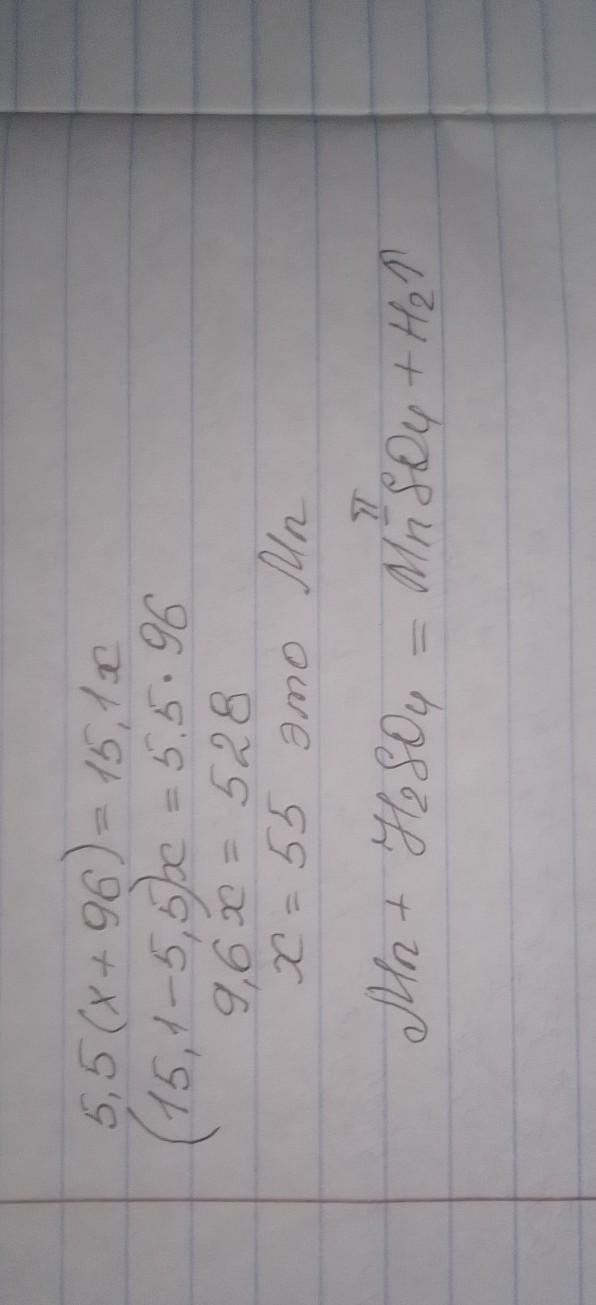 5,5(x+96)=15,1x
(15,1-5,5)x=5.5·96
9,6x=528
x=55 это Mn
II
Mn+H₂SO₄=MnSO₄+H₂↑